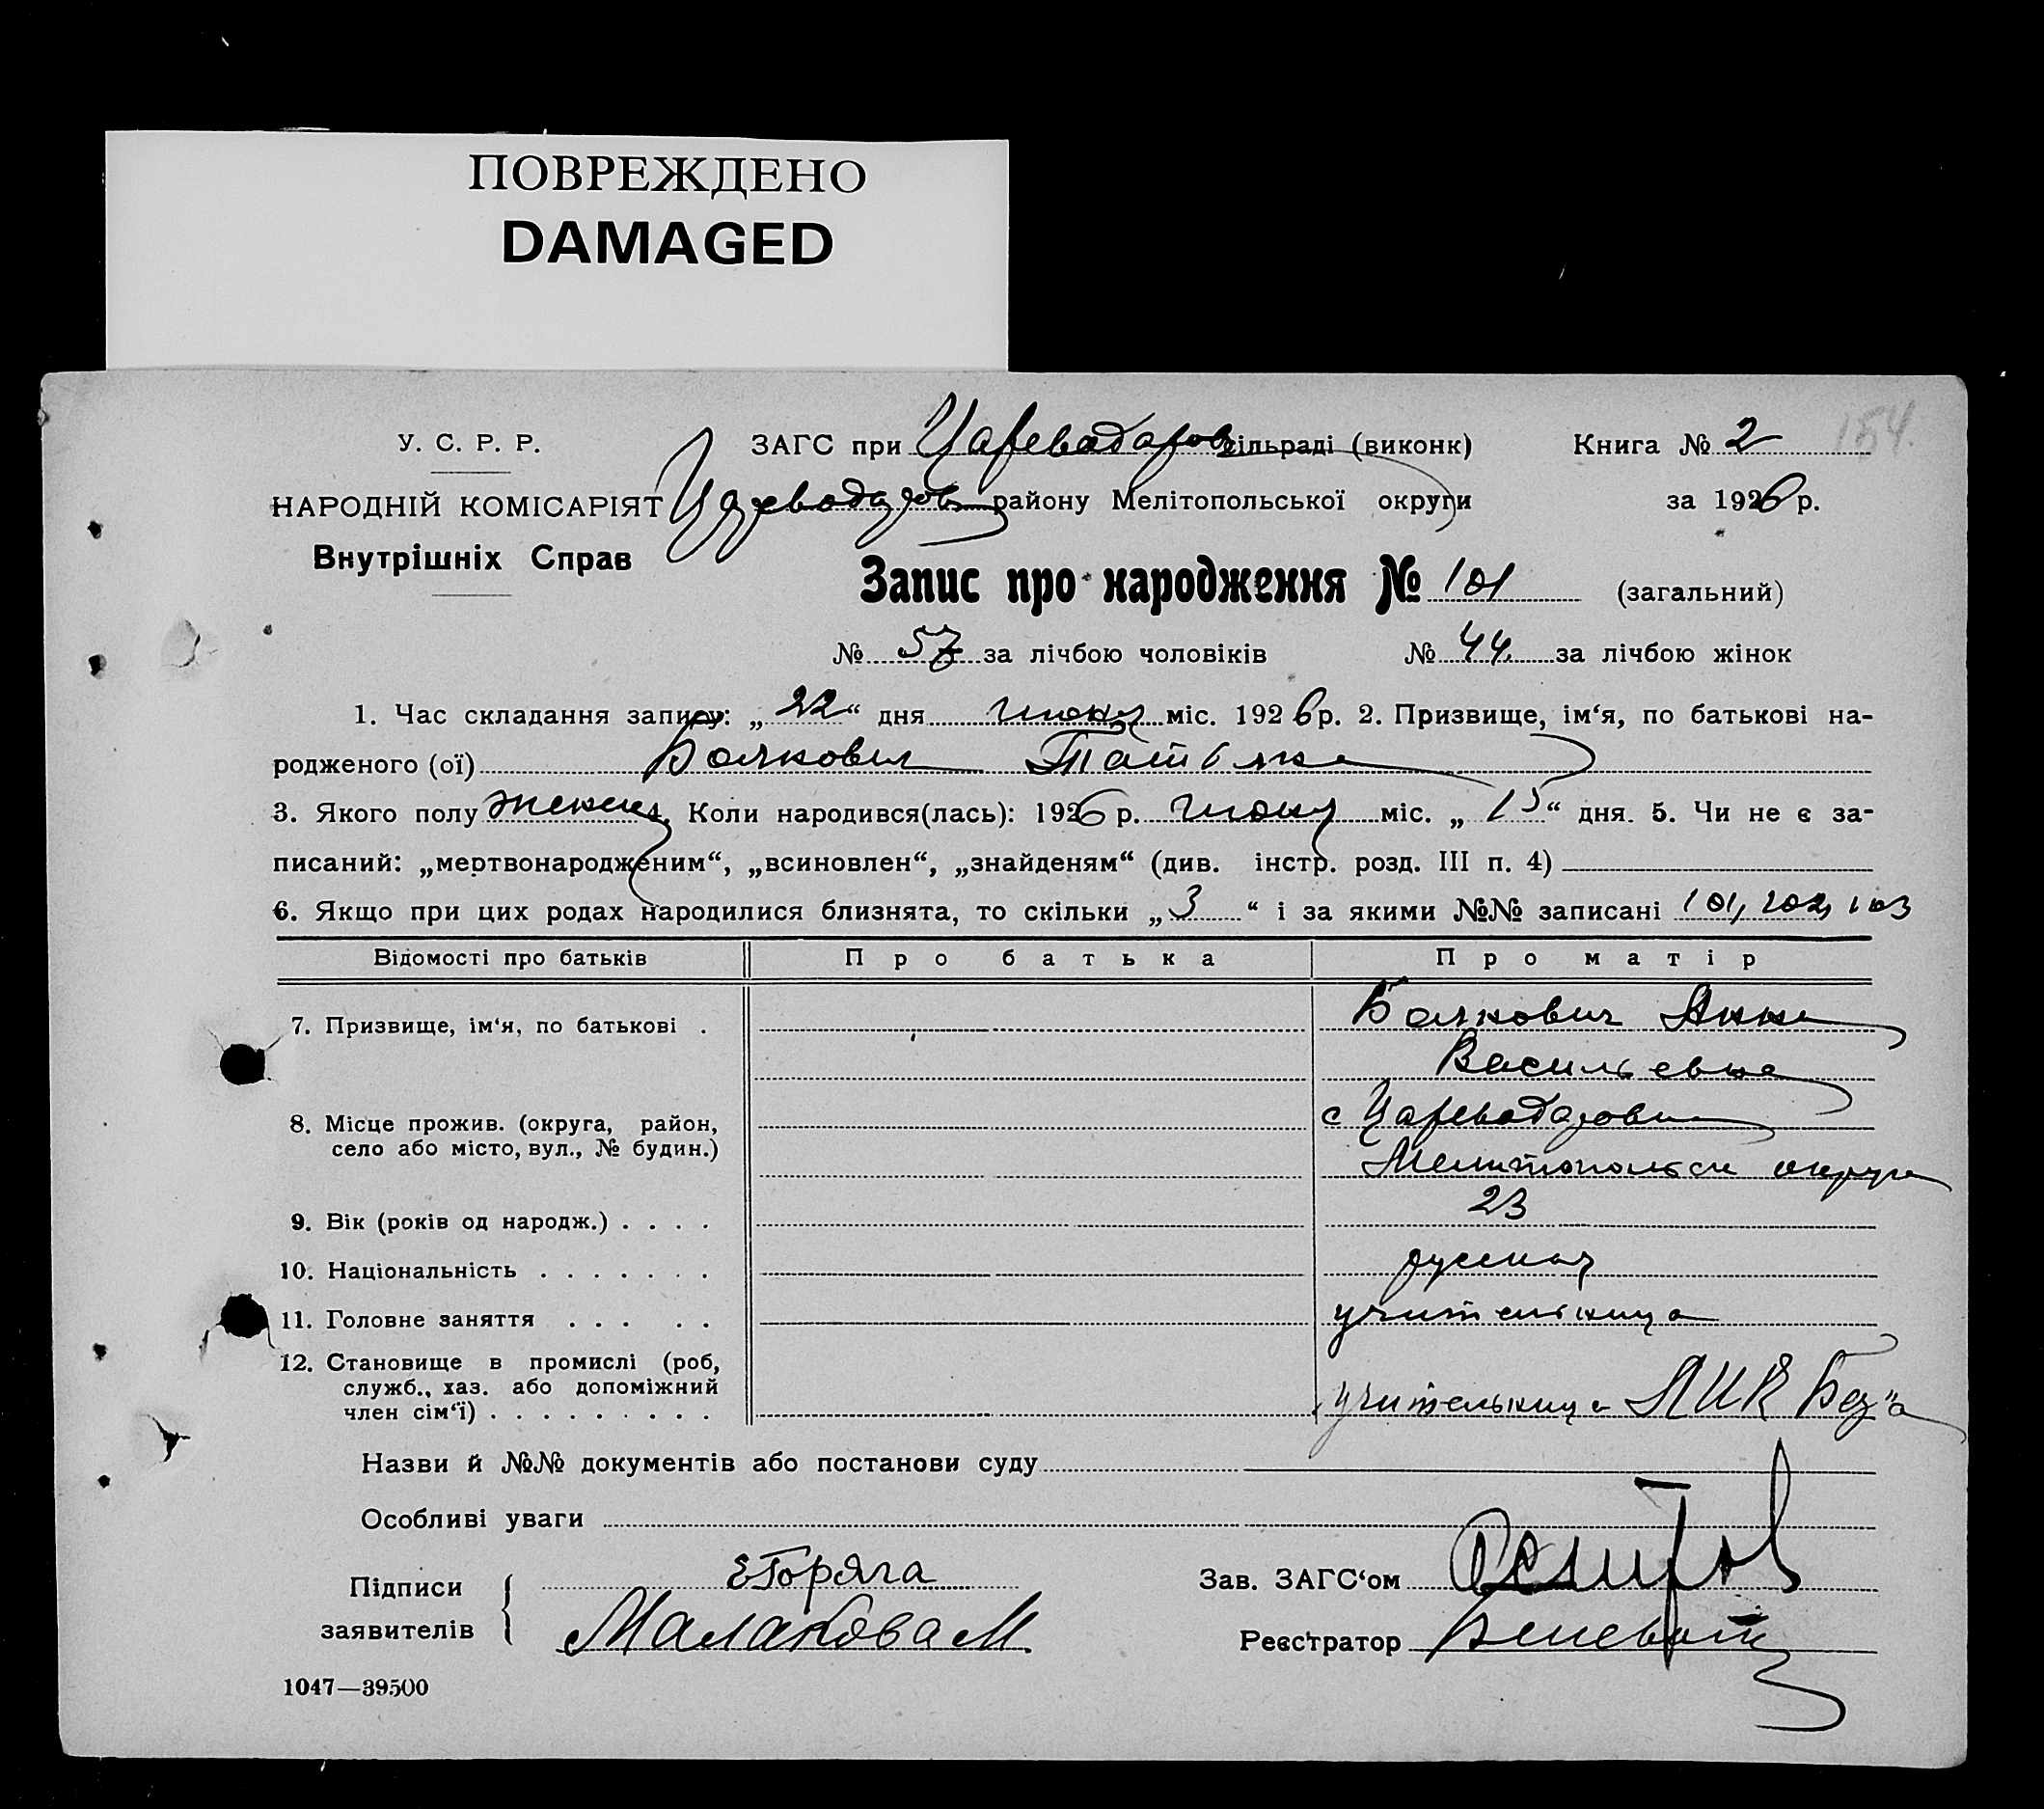 ПОВРЕЖДЕНО
DAMAGED
154.
У. С. Р. Р. ЗАГС при Цареводаров сільраді (виконк) Книга № 2
НАРОДНІЙ КОМІСАРІЯТ Цареводаров району Мелітопольської округи за 1926 р.
Внутрішніх Справ
Запис про народження № 101 (загальний)
№ 57 за лічбою чоловіків № 44 за лічбою жінок
1. Час складання запису: „22“ дня июня міс. 1926 р. 2. Призвище, ім‘я, по батькові на-
родженого (ої) Татьяна
3. Якого полу женск 4. Коли народився(лась): 1926 р. июня міс. „15“ дня. 5. Чи не є за-
писаний: „мертвонародженим“, „всиновлен“, „знайденям“ (див. інстр. розд. III п. 4)
6. Якщо при цих родах народилися близнята, то скільки „3“ і за якими №№ записані 101, 102, 103
Відомості про батьків Про батька Про матір
7. Призвище, ім‘я, по батькові . Анна
Васильевна
8. Місце прожив. (округа, район, с Цареводаровка
село або місто, вул., № будин.) Мелитопольск округа
9. Вік (років од народж.) . . . . 23
10. Національність . . . . . . . русская
11. Головне заняття . . . . . учительница
12. Становище в промислі (роб,
служб., хаз. або допоміжний
член сім‘ї) . . . . . . . . . учительница
Назви й №№ документів або постанови суду
Особливі уваги
Підписи ЕГоряга Зав. ЗАГС‘ом
заявителів Малакова М. Реєстратор
1047—39500